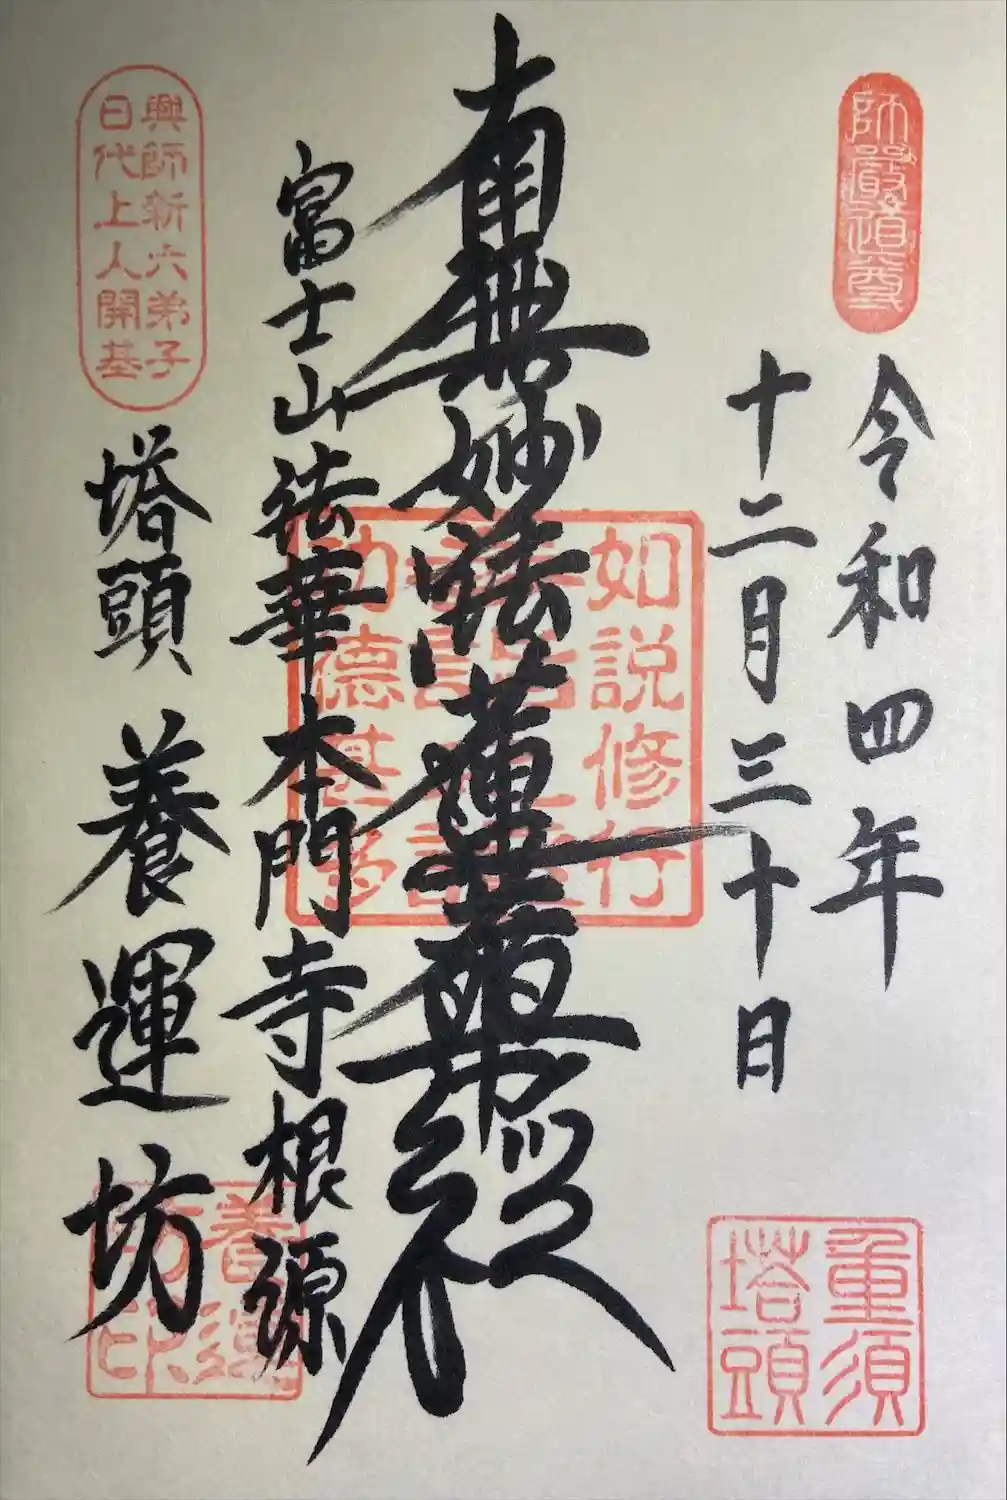 師嚴道尊
令和四年
十二月三十日
南無妙法蓮華經
如説修行
功德甚多
富士山法華本門寺根源
興師新六弟子
日代上人開基
塔頭 養運坊
重須
塔頭
養運
坊印